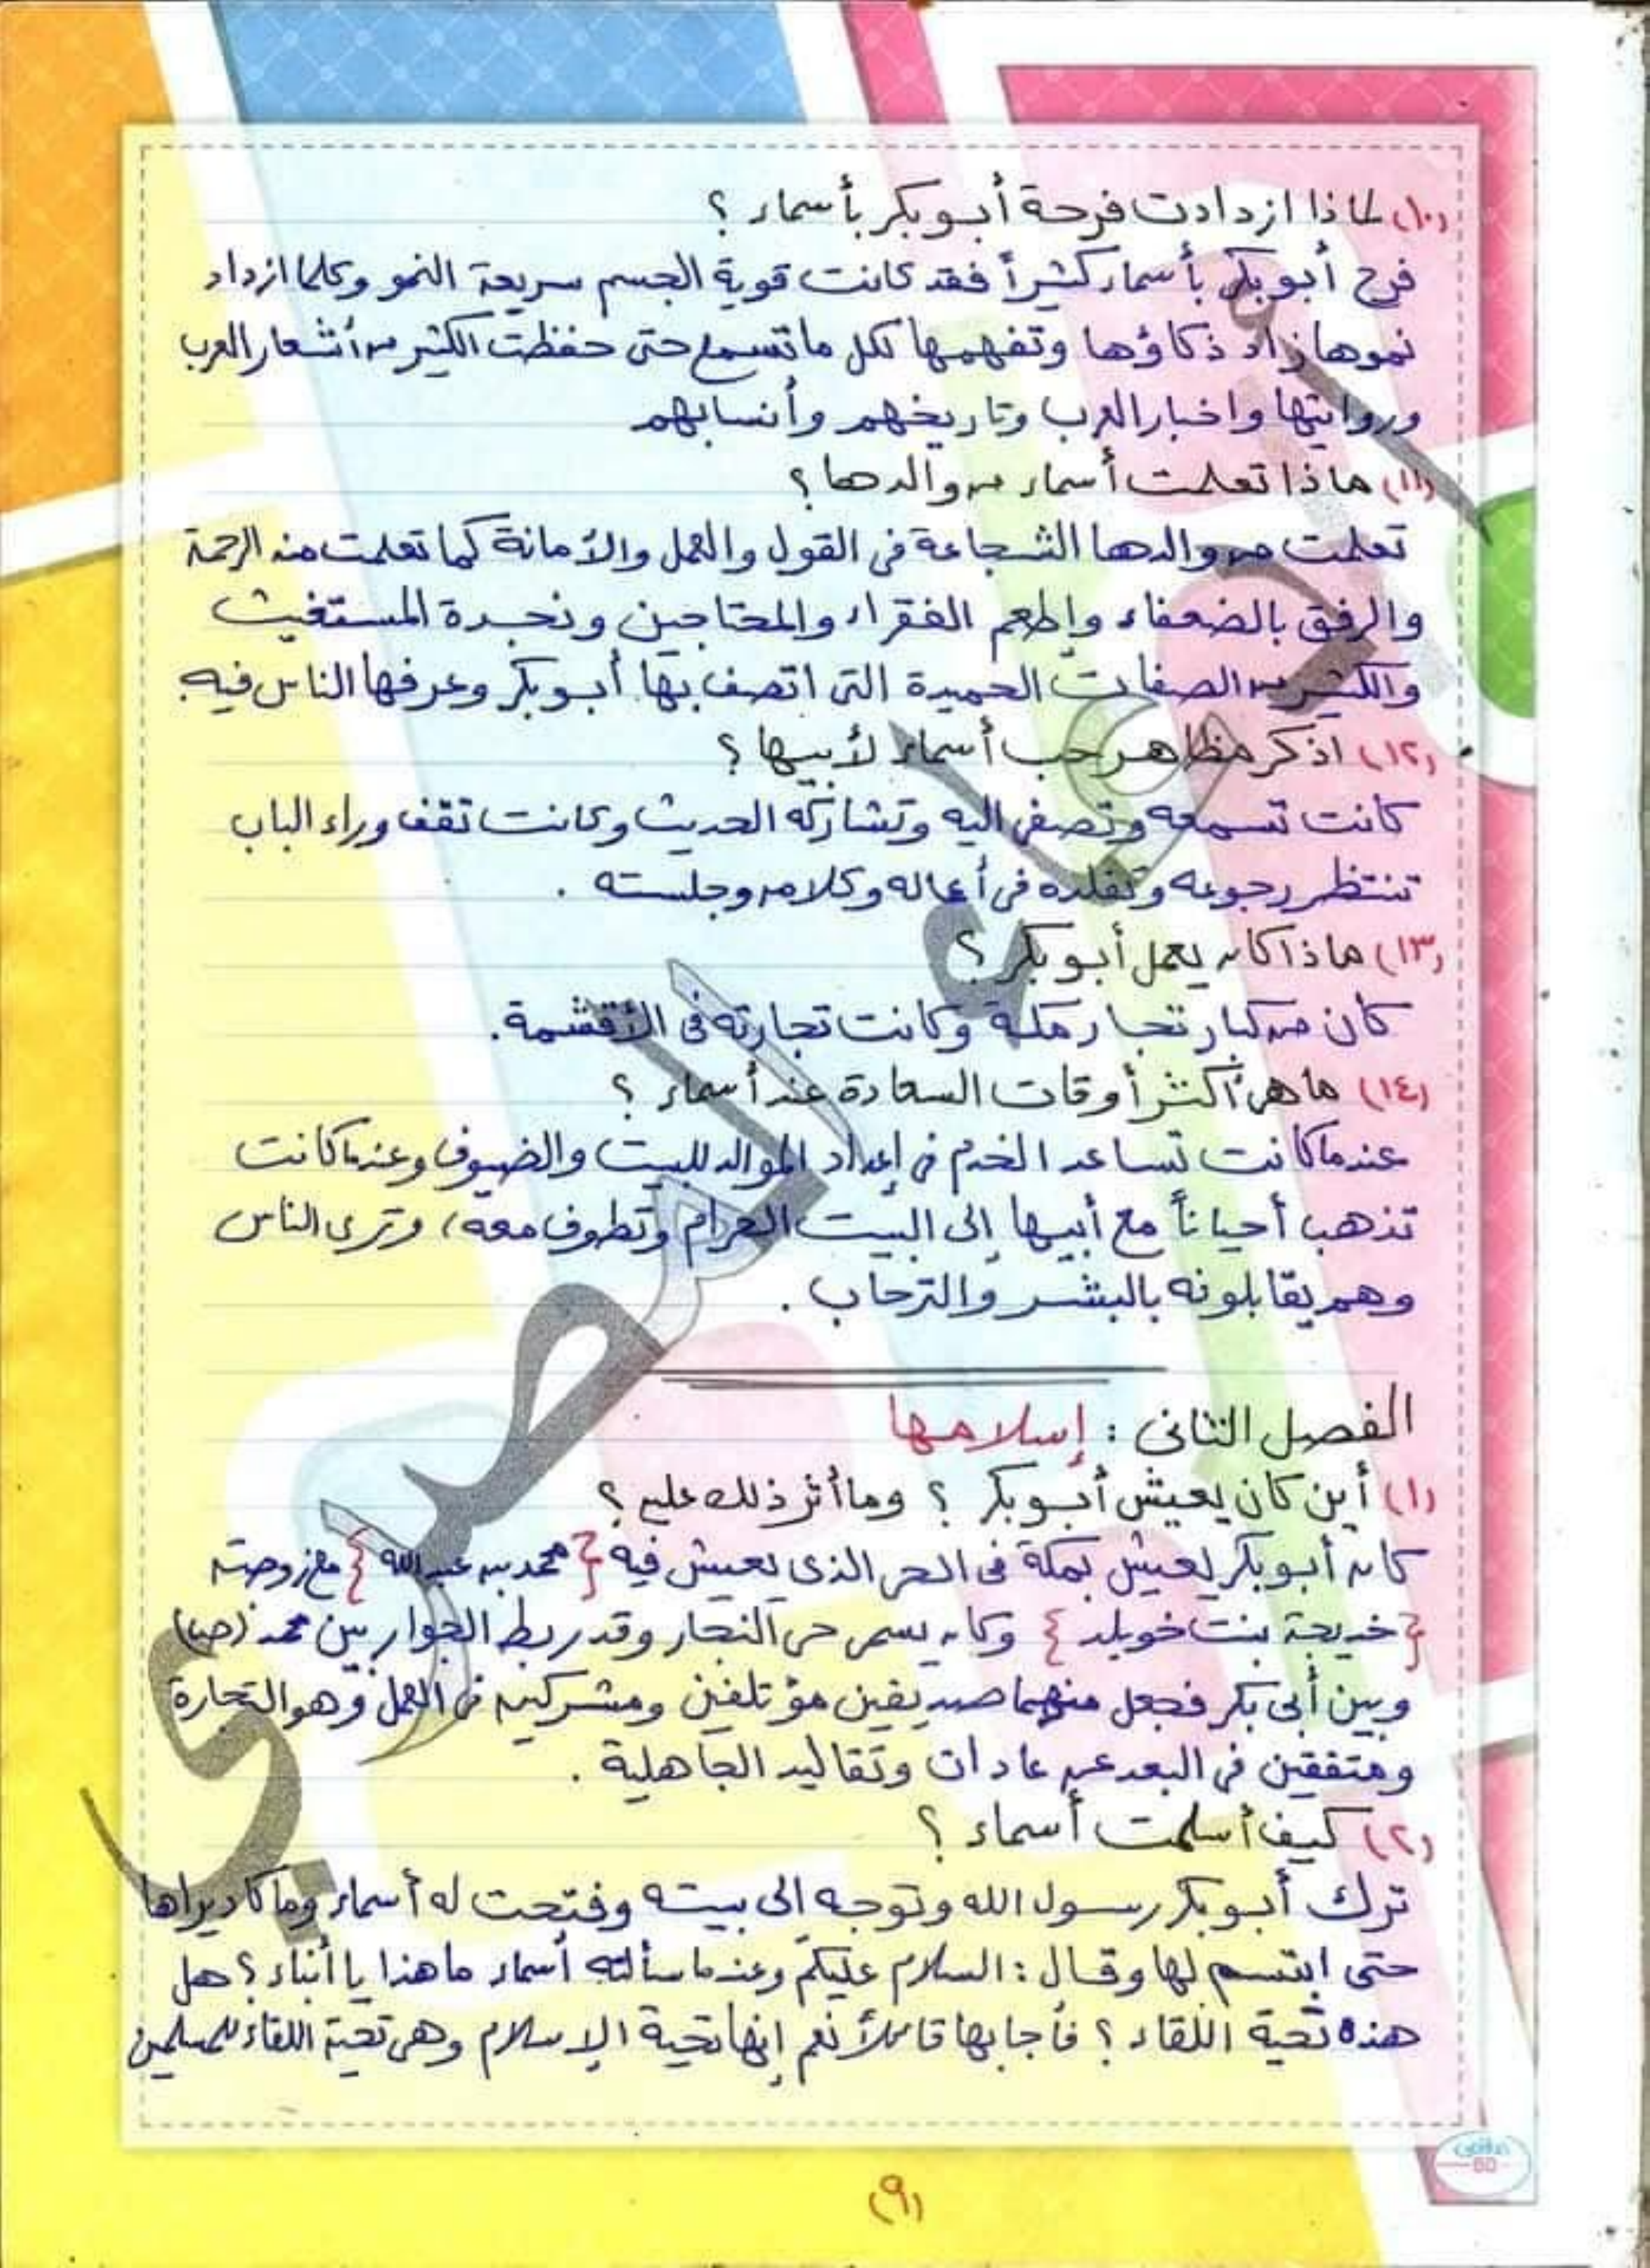 (١٠) لماذا ازدادت فرحة أبو بكر بأسماء ؟
فرح أبو بكر بأسماء كثيراً فقد كانت قوية الجسم سريعة النمو وكلما ازداد
نموها زاد ذكاؤها وتفهمها لكل ما تسمع حتى حفظت الكثير من أشعار العرب
وروايتها واخبار العرب وتاريخهم وأنسابهم
(١١) ماذا تعلمت أسماء من والدها ؟
تعلمت من والدها الشجاعة فى القول والعمل والأمانة كما تعلمت منه الرحمة
والرفق بالضعفاء وإطعم الفقراء والمحتاجين ونجدة المستغيث
والكثير من الصفات الحميدة التى اتصف بها أبو بكر وعرفها الناس فيه.
(١٢) اذكر مظاهر حب أسماء لأبيها ؟
كانت تسمعه وتصغى اليه وتشاركه الحديث وكانت تقف وراء الباب
تنتظر رجوعه وتقلده فى أعماله وكلامه وجلسته .
(١٣) ماذا كان يعمل أبو بكر ؟
كان من كبار تجار مكة وكانت تجارته فى الأقشمة.
(١٤) ما هى أكثر أوقات السعادة عند أسماء ؟
عندما كانت تساعد الخدم فى إعداد الموالد للبيت والضيوف وعندما كانت
تذهب أحياناً مع أبيها إلى البيت الحرام وتطوف معه، وترى الناس
وهم يقابلونه بالبشر والترحاب .
الفصل الثانى : إسلامها
(١) أين كان يعيش أبو بكر ؟ وما أثر ذلك عليه ؟
كان أبو بكر يعيش بمكة فى الحى الذى يعيش فيه { محمد بن عبد الله } مع زوجته
{ خديجة بنت خويلد } وكان يسمى حى التجار وقد ربط الجوار بين محمد (ص)
وبين أبى بكر فجعل منهما صديقين مؤتلفين ومشركين فى العمل وهو التجارة
ومتفقين فى البعد عن عادات وتقاليد الجاهلية .
(٢) كيف أسلمت أسماء ؟
ترك أبو بكر رسول الله وتوجه إلى بيته وفتحت له أسماء وما كاد يراها
حتى ابتسم لها وقال : السلام عليكم وعندما سألته أسماء ما هذا يا أبتاه ؟ هل
هذه تحية اللقاء ؟ فأجابها قائلاً نعم إنها تحية الإسلام وهى تحية اللقاء للمسلمين
(٩)